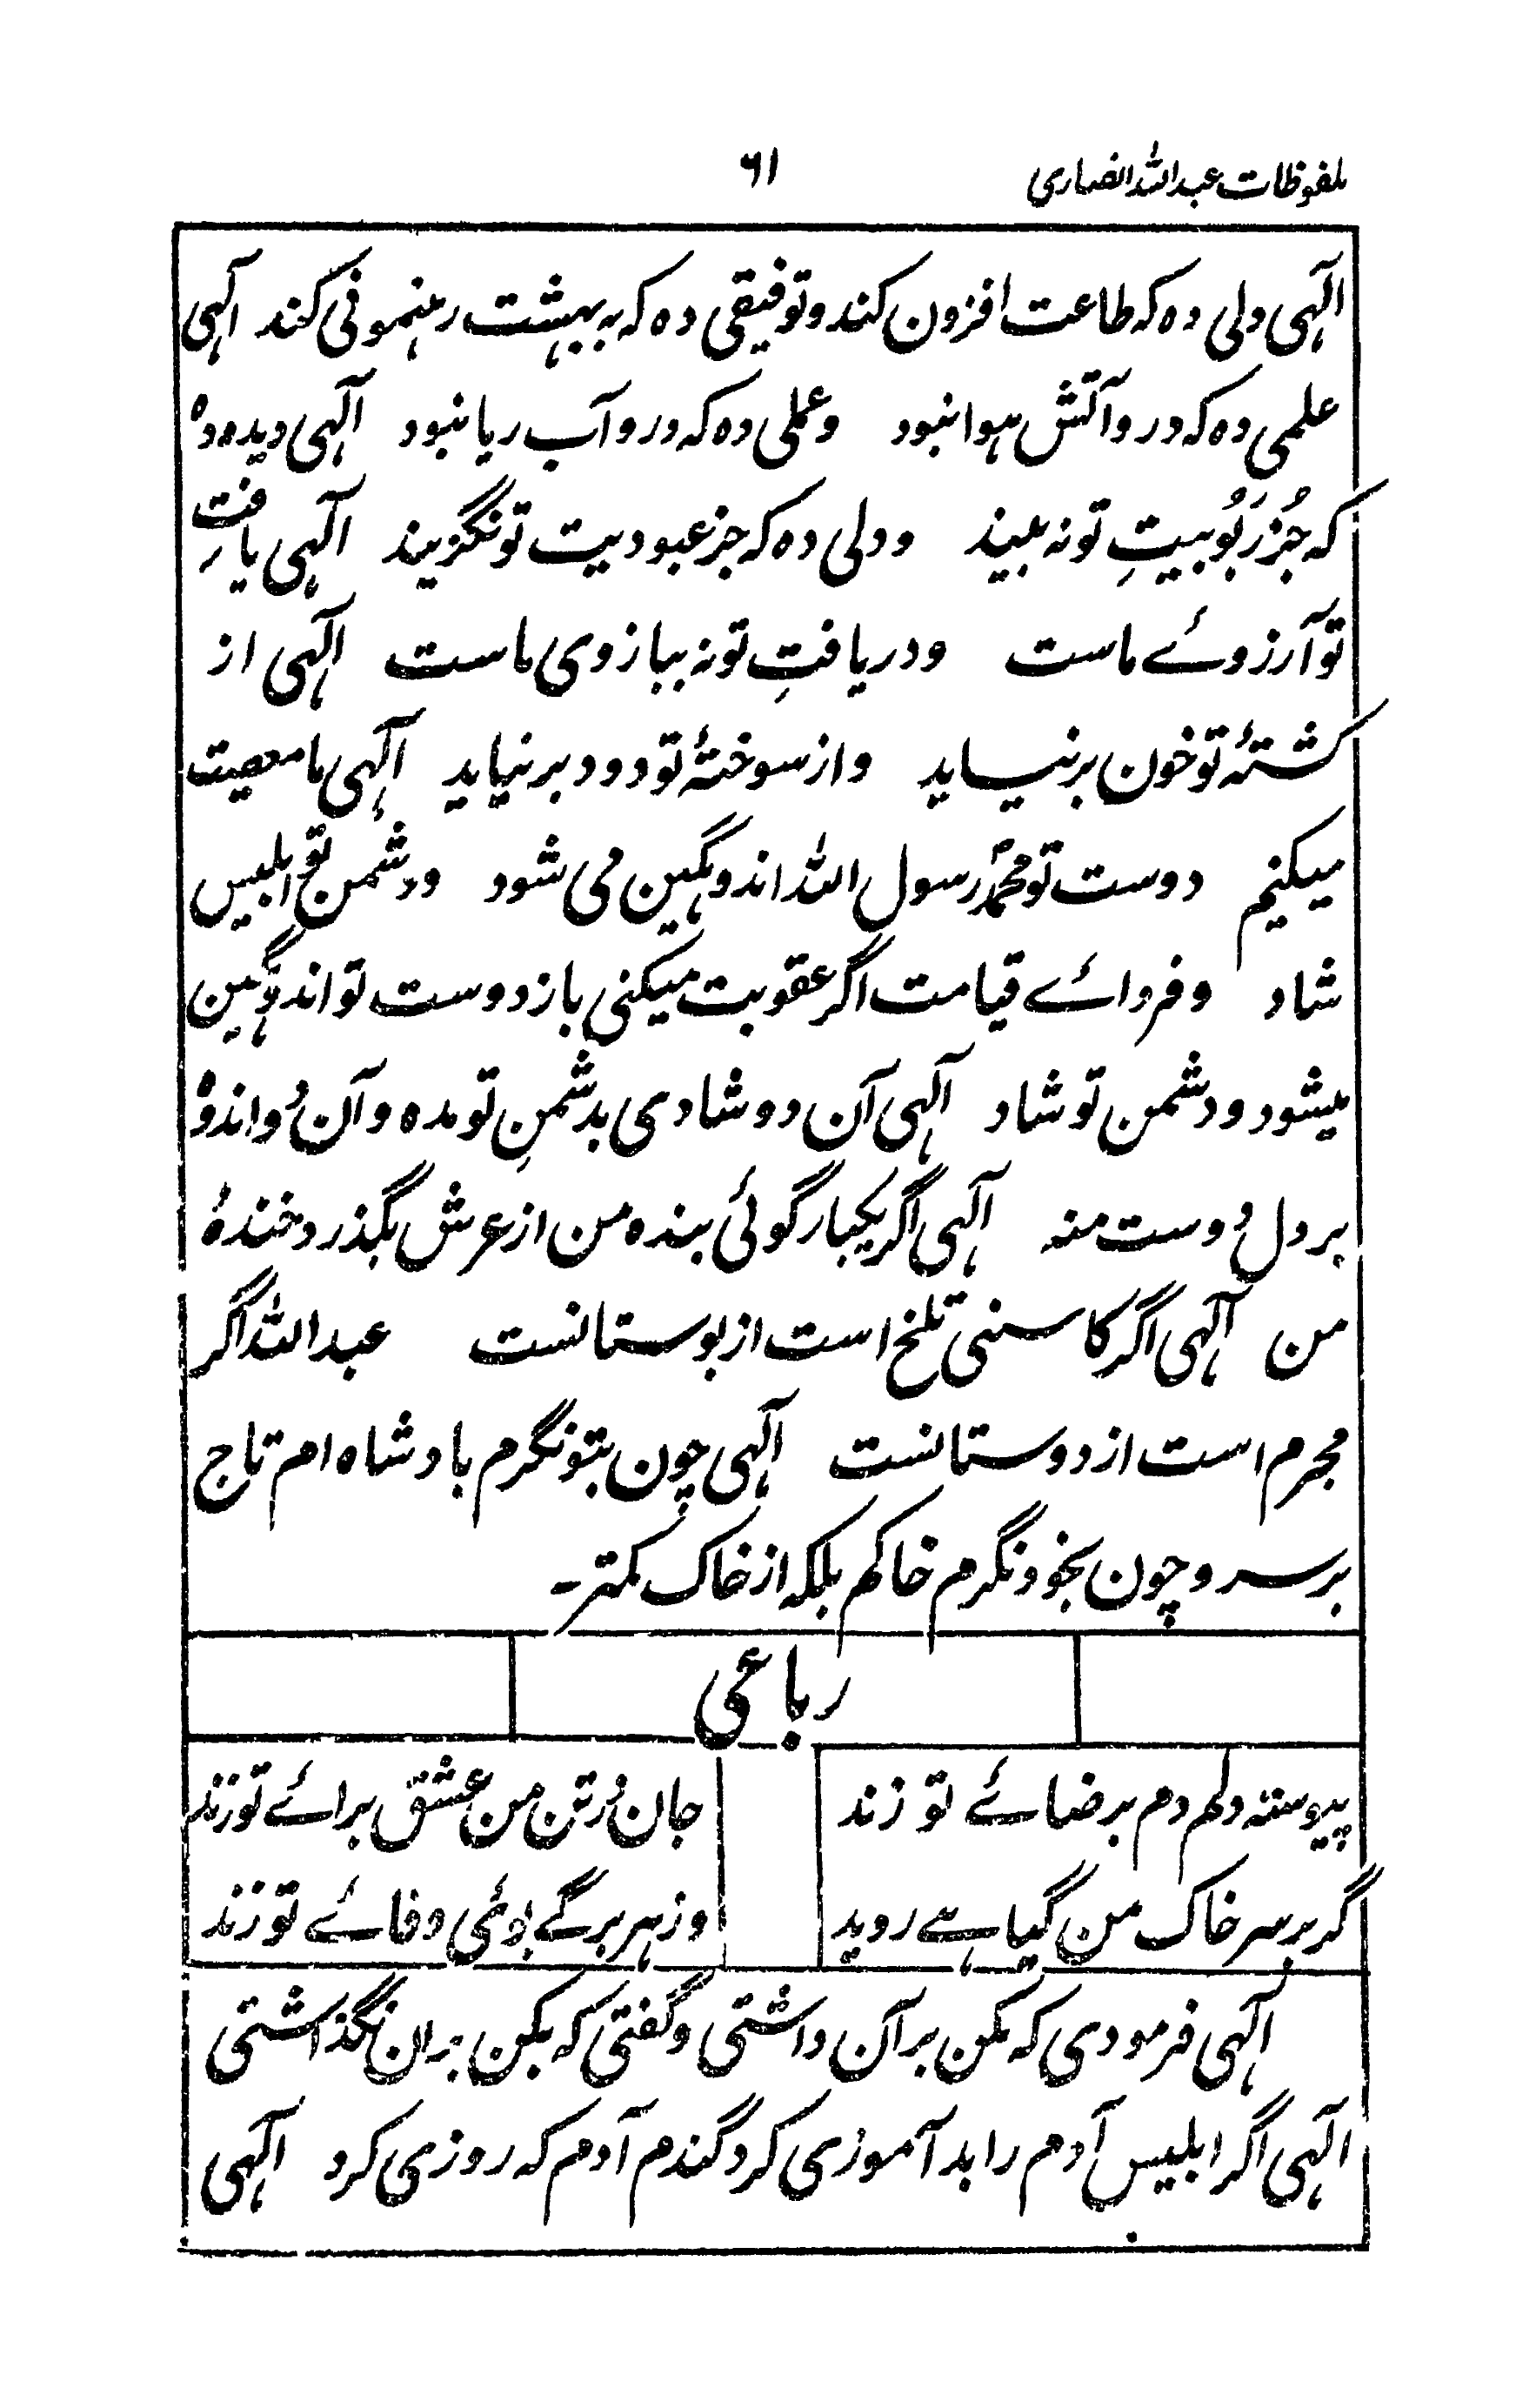 ملفوظات عبداللہ انصاری ۶۱
الٰہی دلی دہ کہ طاعت افزون کند و توفیقی دہ کہ بہ بہشت رہنمونی کند الٰہی
علمی دہ کہ درو آتش ہوا نبود و عملی دہ کہ درو آب ریا نبود الٰہی دیدہ دہ
کہ جُز رَبُوبیتِ تو نہ بیند و دلی دہ کہ جز عبودیت تو نگزیند الٰہی یافتِ
تو آرزوئے ماست و دریافتِ تو نہ ببازوی ماست الٰہی از
کشتۂ تو خون برنیاید و از سوختۂ تو دود برنیاید الٰہی ما معصیت
میکنیم دوست تو محمدؐ رسول اللہ اندوہگین می شود و دشمن تو ابلیس
شاد و فردائے قیامت اگر عقوبت میکنی باز دوست تو اندوہگین
میشود و دشمن تو شاد الٰہی آن دو شادی بدشمنِ تو مدہ و آن دُو اندوہ
بر دل دُوست منہ الٰہی اگر یکبار گوئی بندہ من از عرش بگذرد خندۂ
من الٰہی اگر کاسنی تلخ است از بوستانست عبداللہ اگر
مجرم است از دوستانست الٰہی چون بتو نگرم بادشاہ ام تاج
بر سر و چون بخود نگرم خاکم بلکہ از خاک کمتر۔
رباعی
پیوستہ دلم دم برضائے تو زند جان دُر تن من عشق برائے تو زند
گر بر سر خاک من گیاہے روید وز ہر برگے بوئی وفائے تو زند
الٰہی فرمودی کہ مکن بر آن داشتی و گفتی کہ بکن بران نگذاشتی
الٰہی اگر ابلیس آدم را بد آموزی کرد گندم آدم کہ روزی کرد الٰہی